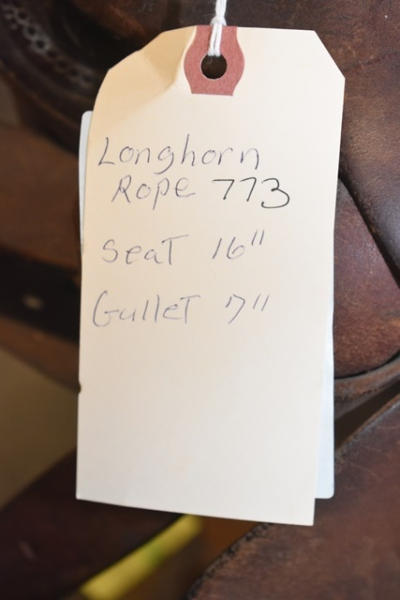 Longhorn
Rope 773
Seat 16"
Gullet 7"